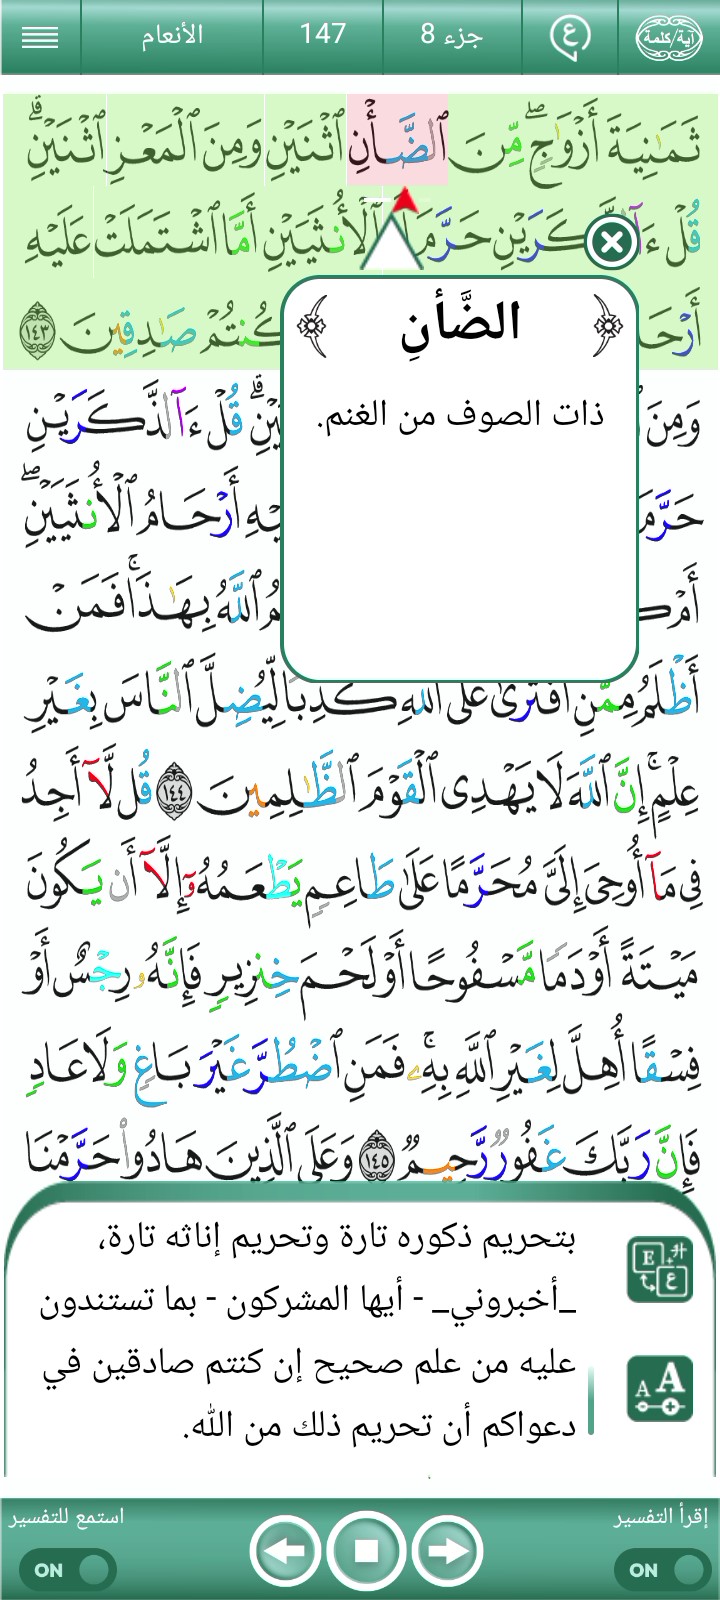 الأنعام 147 جزء 8 ع آية/كلمة
ثَمَٰنِيَةَ أَزْوَٰجٍۖ مِّنَ ٱلضَّأْنِ ٱثْنَيْنِ وَمِنَ ٱلْمَعْزِ ٱثْنَيْنِۗ
قُلْ ءَآ كَرَيْنِ حَرَّمَ ٱلْأُنثَيَيْنِ أَمَّا ٱشْتَمَلَتْ عَلَيْهِ
أَرْحَا كُنتُمْ صَٰدِقِينَ ١٤٣
الضَّأنِ
ذات الصوف من الغنم.
وَمِنَ يْنِۗ قُلْ ءَآلذَّكَرَيْنِ
حَرَّمَ يْهِ أَرْحَامُ ٱلْأُنثَيَيْنِۖ
أَمْ كُ مُ ٱللَّهُ بِهَٰذَاۚ فَمَنْ
أَظْلَمُ مِمَّنِ ٱفْتَرَىٰ عَلَى ٱللَّهِ كَذِبًا لِّيُضِلَّ ٱلنَّاسَ بِغَيْرِ
عِلْمٍۚ إِنَّ ٱللَّهَ لَا يَهْدِى ٱلْقَوْمَ ٱلظَّٰلِمِينَ ١٤٤ قُل لَّآ أَجِدُ
فِى مَآ أُوحِىَ إِلَىَّ مُحَرَّمًا عَلَىٰ طَاعِمٍ يَطْعَمُهُۥٓ إِلَّآ أَن يَكُونَ
مَيْتَةً أَوْ دَمًا مَّسْفُوحًا أَوْ لَحْمَ خِنزِيرٍ فَإِنَّهُۥ رِجْسٌ أَوْ
فِسْقًا أُهِلَّ لِغَيْرِ ٱللَّهِ بِهِۦۚ فَمَنِ ٱضْطُرَّ غَيْرَ بَاغٍ وَلَا عَادٍ
فَإِنَّ رَبَّكَ غَفُورٌ رَّحِيمٌ ١٤٥ وَعَلَى ٱلَّذِينَ هَادُوا۟ حَرَّمْنَا
بتحريم ذكوره تارة وتحريم إناثه تارة،
_أخبروني_ - أيها المشركون - بما تستندون
عليه من علم صحيح إن كنتم صادقين في
دعواكم أن تحريم ذلك من الله.
E ع
A A
استمع للتفسير إقرأ التفسير
ON ON